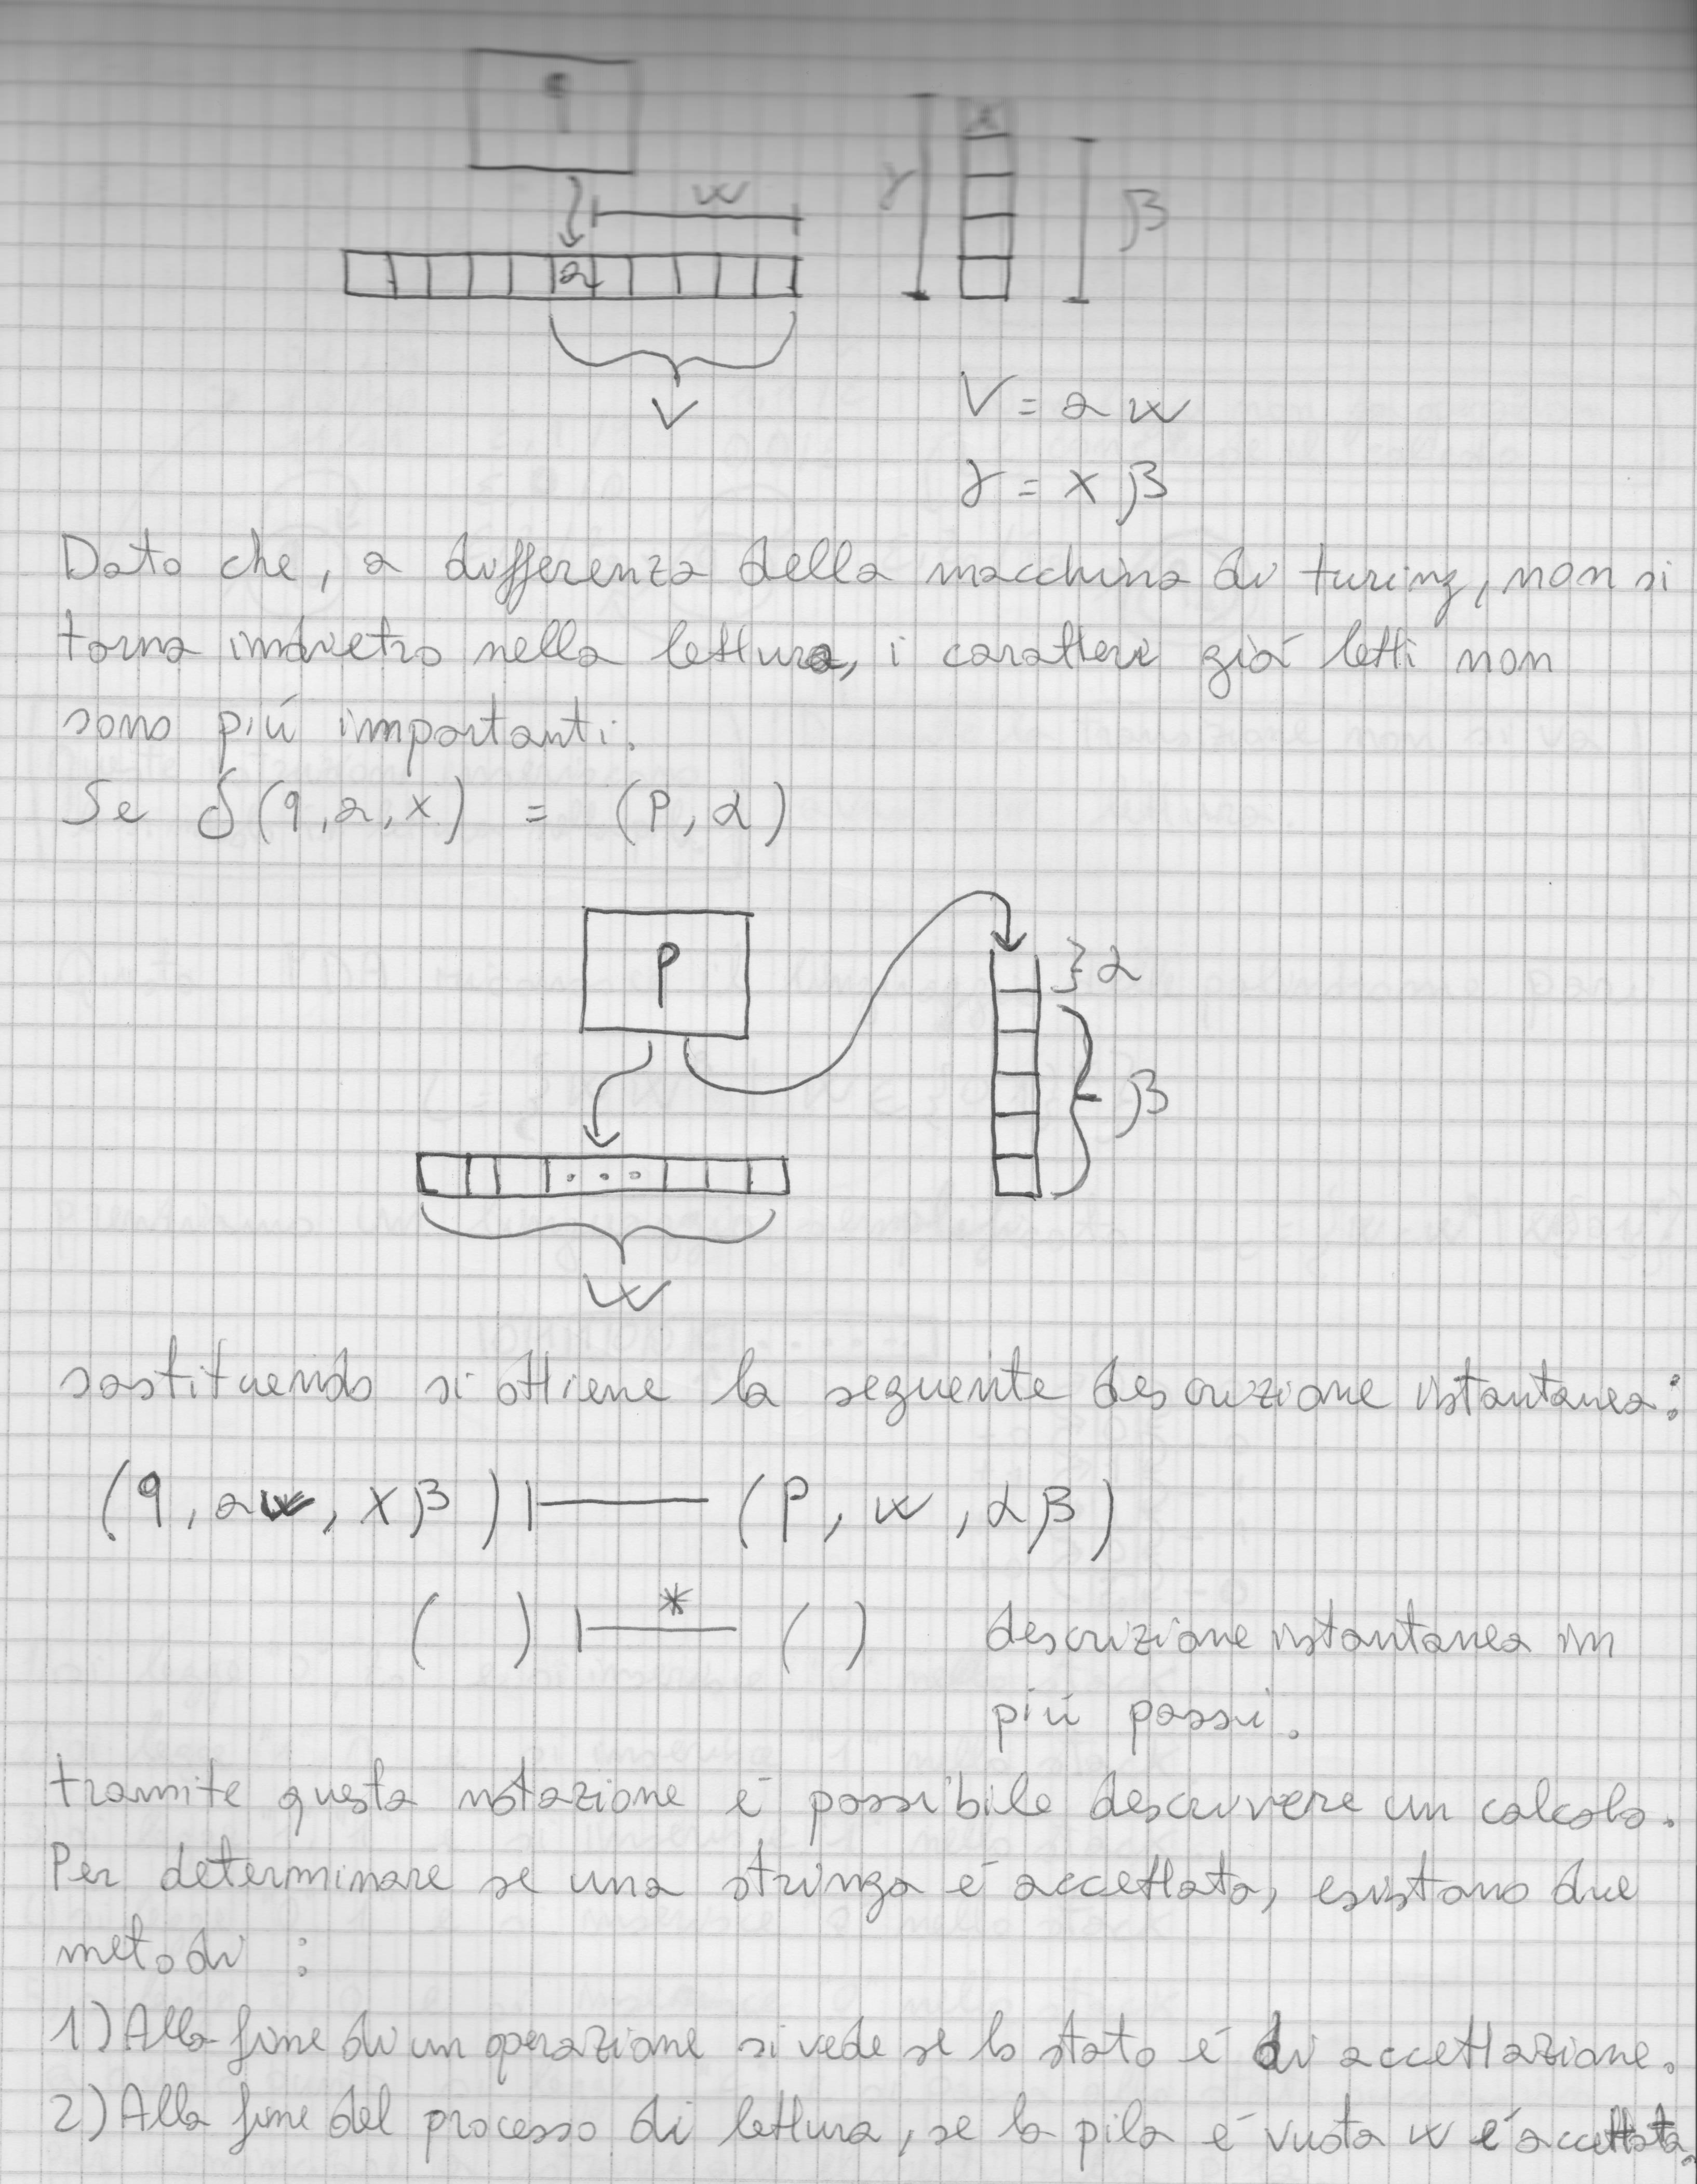 q
x
w
γ
β
a
V
V = a w
γ = x β
Dato che, a differenza della macchina di turing, non si
torna indietro nella lettura, i caratteri già letti non
sono più importanti.
Se δ(q,a,x) = (p,α)
P
}α
β
...
W
sostituendo si ottiene la seguente descrizione istantanea:
(q, aw, xβ) |— (p, w, αβ)
( ) |—* ( ) descrizione istantanea in
più passi.
tramite questa notazione é possibile descrivere un calcolo.
Per determinare se una stringa é accettata, esistono due
metodi :
1) Alla fine di un operazione si vede se lo stato é di accettazione.
2) Alla fine del processo di lettura, se la pila é vuota w é accettata.